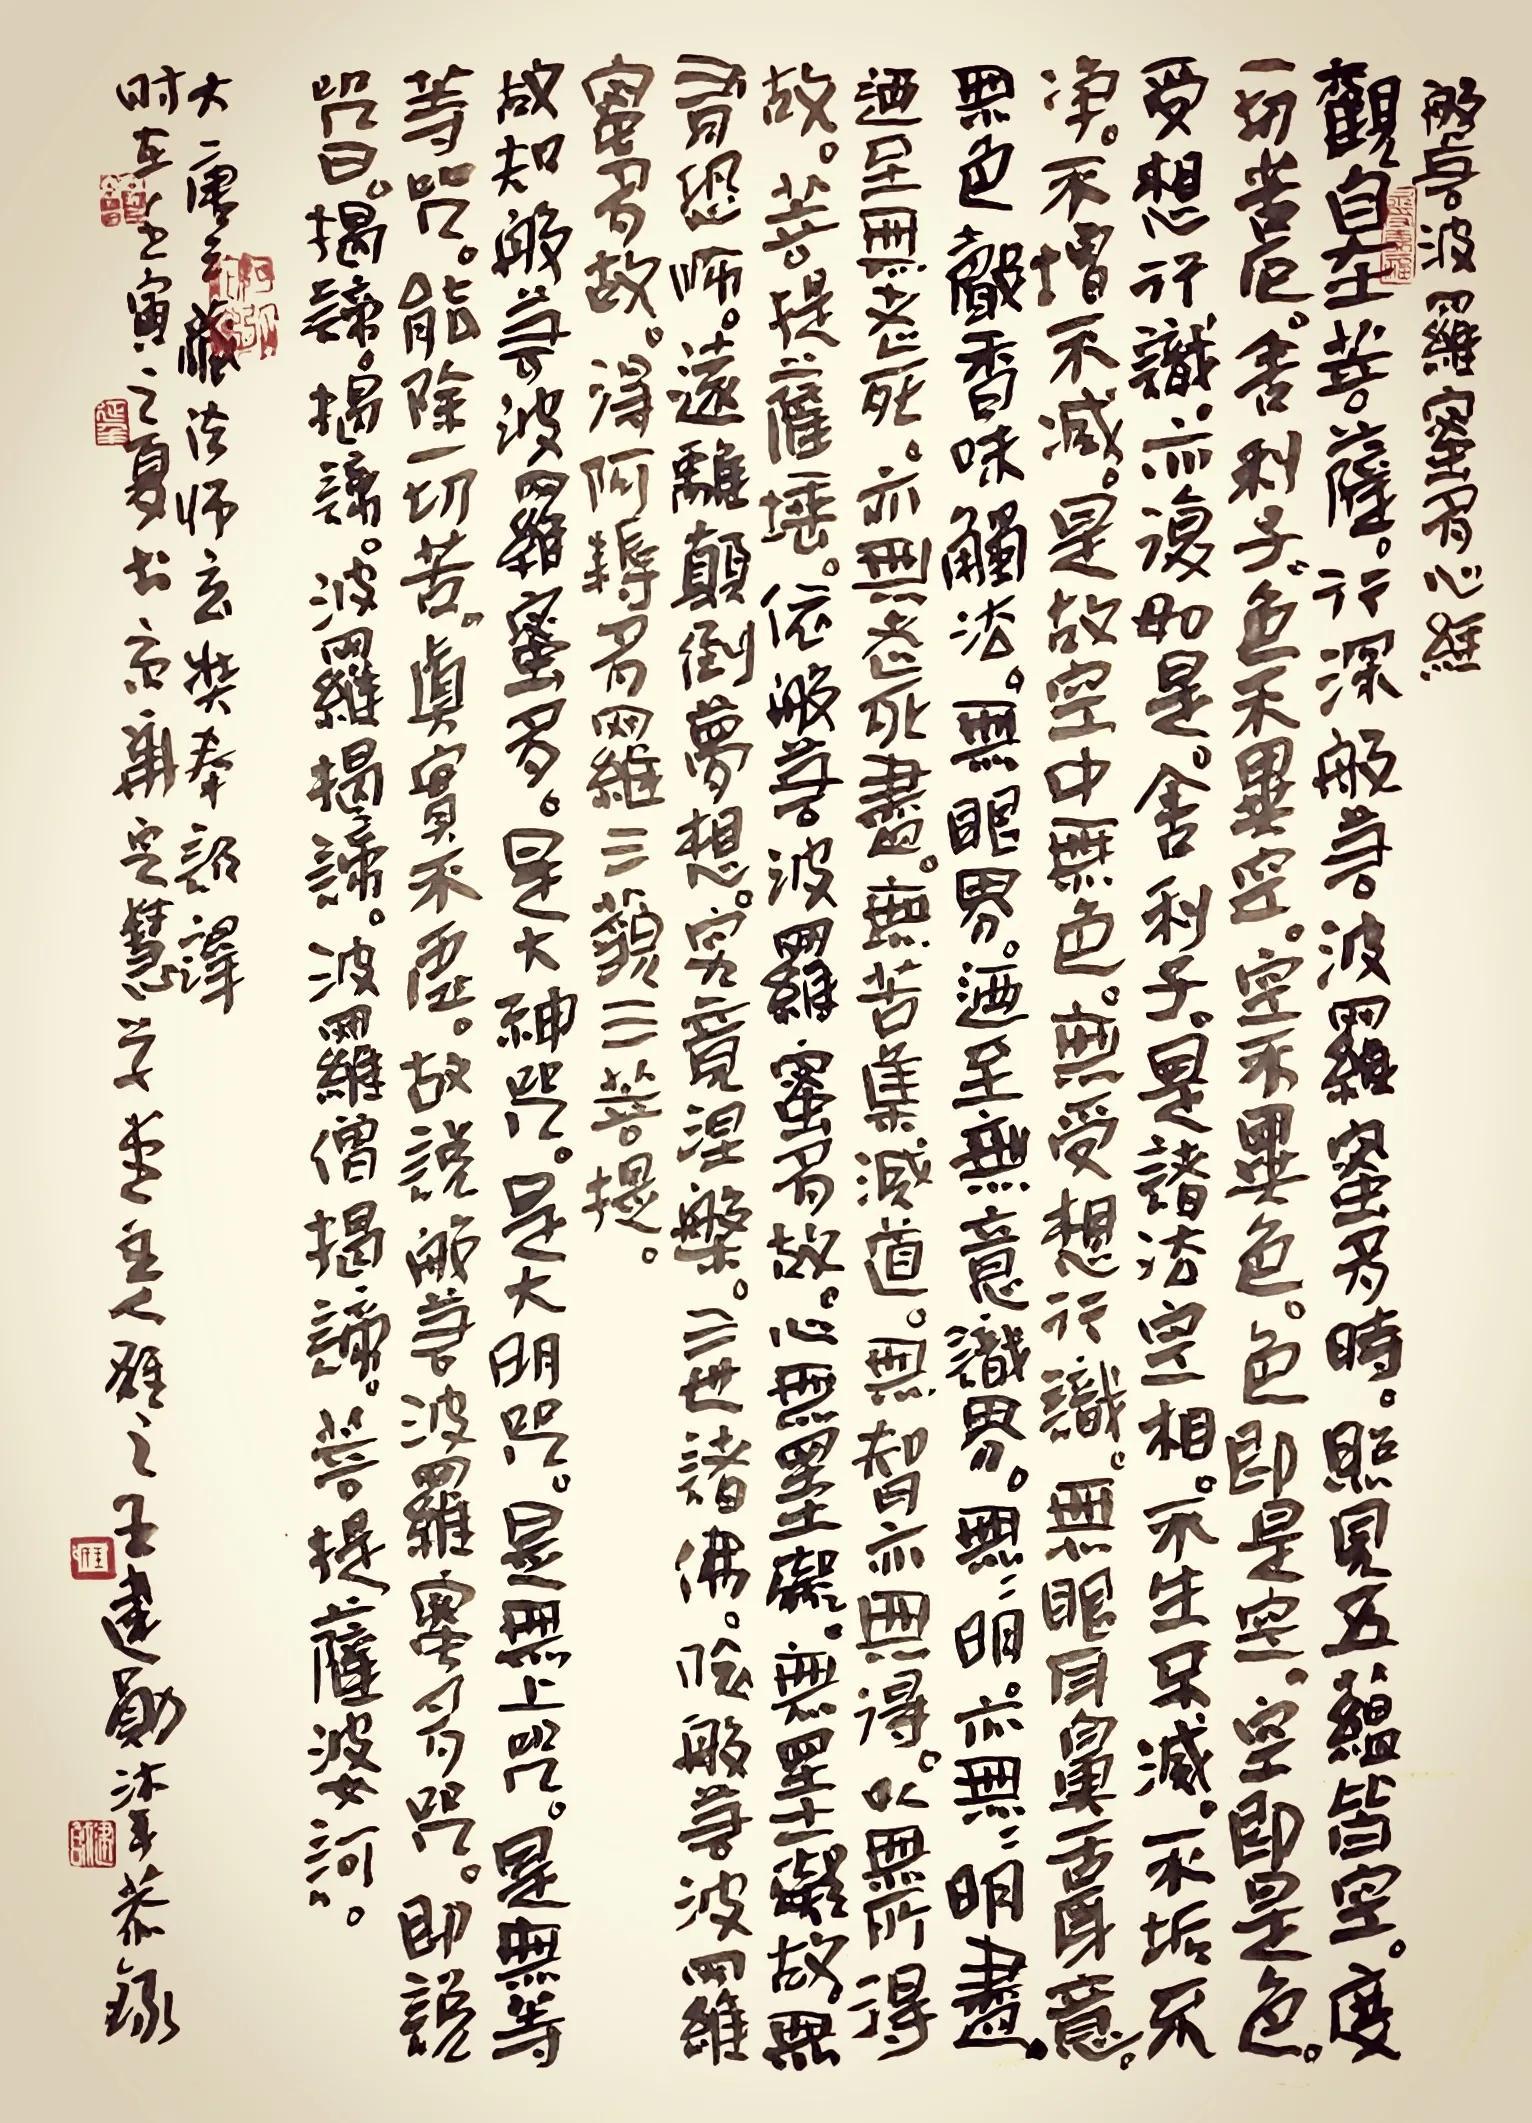 般若波羅蜜多心經
觀自在菩薩。行深般若波羅蜜多時。照見五蘊皆空。度
一切苦厄。舍利子。色不異空。空不異色。色即是空。空即是色。
受想行識。亦復如是。舍利子。是諸法空相。不生不滅。不垢不
净。不增不减。是故空中無色。無受想行識。無眼耳鼻舌身意。
無色聲香味觸法。無眼界。迺至無意識界。無明。亦無明盡。
迺至無老死。亦無老死盡。無苦集滅道。無智亦無得。以無所得
故。菩提薩埵。依般若波羅蜜多故。心無罣礙。無罣礙故。無
有恐怖。遠離顛倒夢想。究竟涅槃。三世諸佛。依般若波羅
蜜多故。得阿耨多羅三藐三菩提。
故知般若波羅蜜多。是大神咒。是大明咒。是無上咒。是無等
等咒。能除一切苦。真實不虛。故説般若波羅蜜多咒。即説
咒曰。揭諦。揭諦。波羅揭諦。波羅僧揭諦。菩提薩婆訶。
大唐三藏法师玄奘奉詔譯
时在壬寅之夏书京華定慧学堂主人雄之王建勛沐手恭録